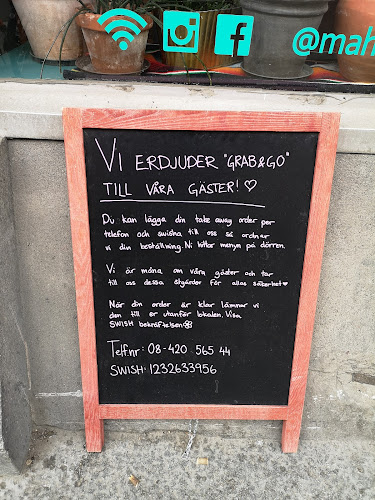 @mah
VI ERDJUDER "GRAB&GO"
TILL VÅRA GÄSTER! ♡
Du kan lägga din take away order per
telefon och swisha till oss så ordnar
vi din beställning. Ni hittar menyn på dörren.
Vi är måna om våra gäster och tar
till oss dessa åtgärder för allas säkerhet ♥
När din order är klar lämnar vi
den till er utanför lokalen. Visa
SWISH bekräftelsen
Telf.nr: 08-420 565 44
SWISH: 1232633956